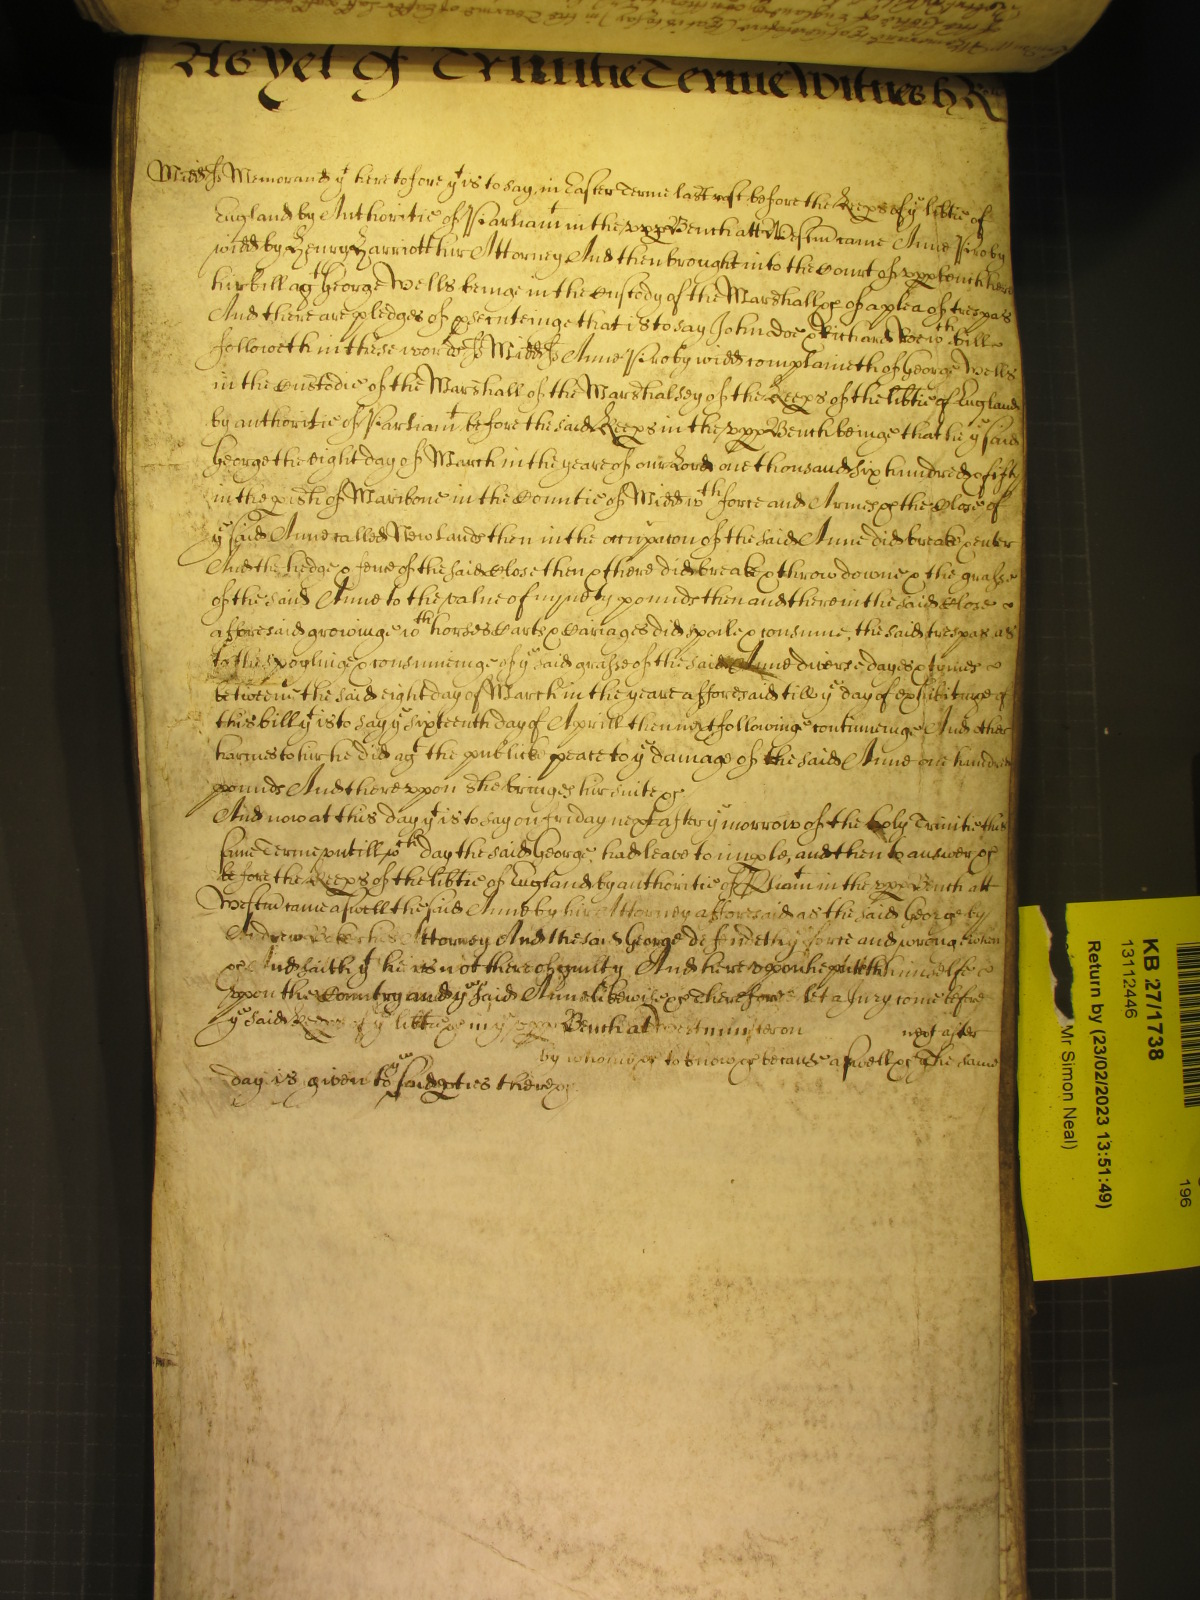 As yet Of Trinitie Terme Witnes h R
Midds ss Memorand yt heretofore yt is to say in Easter Terme last past before the Keeps of ye libtie of
England by Authoritie of Parliamt in the vpp Bench att Westm came Anne Piroby
widd by Henry Harriott hur Attorney And then brought into the Court of vpp bench here
hur bill agt George Wells beinge in the Custody of the Marshall &c of a plea of trespas
And there are pledges of psecuteinge that is to say John doe & Richard Roe wch bill
followeth in these words ss Midds ss Anne Piroby widd complaineth of George Wells
in the Custodie of the Marshall of the Marshalsey of the Keeps of the libtie of England
by authoritie of Parliamt before the said Keeps in the vpp Bench beinge that he ye said
George the eight day of March in the yeare of our Lord one thousand six hundred & fifty
in the pish of Maribone in the Countie of Midd wth force and Armes &c the Close of
ye said Anne called New lands then in the occupacon of the said Anne did breake & enter
And the hedge & fence of the said Close then & there did breake & throw downe & the grasse
of the said Anne to the value of nynety pounds then and there in the said Close
afforesaid growinge wth horses Carts & Cariages did spoile & consume, the said trespas as
to the spoylinge & consumeinge of ye said grasse of the said Anne diverse dayes & tymes
betweene the said eight day of March in the yeare afforesaid till ye day of exhibitinge of
this bill yt is to say ye sixteenth day of Aprill then next followinge continueinge And other
harmes to hur he did agt the publike peace to ye damage of the said Anne one hundred
pounds And there vppon shee bringes hur suite &c
And now at this day yt is to say on friday next after ye morrow of the holy Trinitie this
same Terme vntill wch day the said George had leave to imple, and then to answer &c
before the Keeps of the libtie of England by authoritie of Pliamt in the vpp Bench att
Westm came aswell the said Anne by hir Attorney afforesaid as the said George by
Andrew his Attorney And the said George defendeth ye force and wronge when
&c And saith yt he is not thereof guilty And hereuppon he putteth himselfe
vppon the Countrey and ye said Anne likewise &c Therefore let a Jury come before
ye said Keeps of ye libtie &c in ye vpp Bench att westminster on next after
by whom &c to know &c because aswell &c The same
day is given to ye said pties there &c
KB 27/1738
13112446
Return by (23/02/2023 13:51:49)
Mr Simon Neal)
196